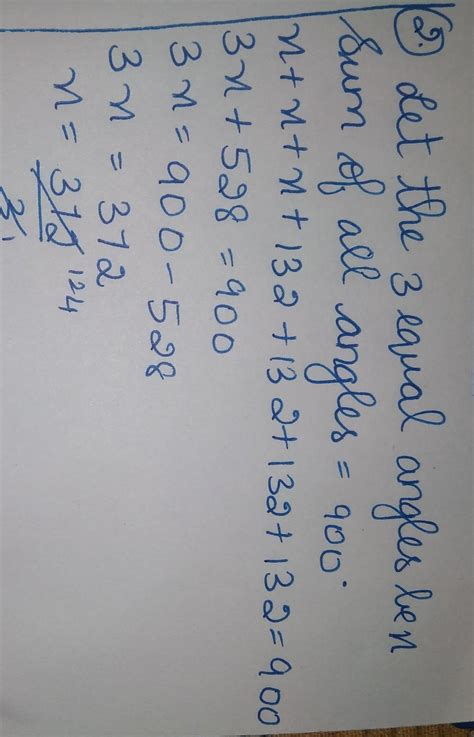 2. Let the 3 equal angles be x
Sum of all angles = 900°
x + x + x + 132 + 132 + 132 + 132 = 900
3x + 528 = 900
3x = 900 - 528
3x = 372
x = 372 124
3 1